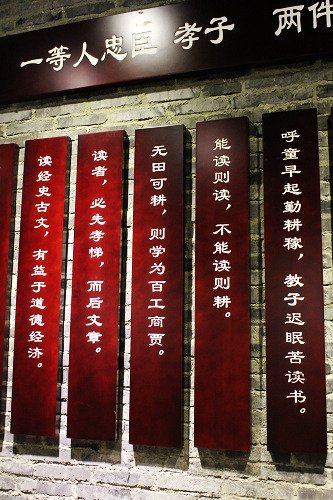 一等人忠臣 孝子 两件
呼童早起勤耕稼，教子迟眠苦读书。
能读则读，不能读则耕。
无田可耕，则学为百工商贾。
读者，必先孝悌，而后文章。
读经史古文，有益于道德经济。